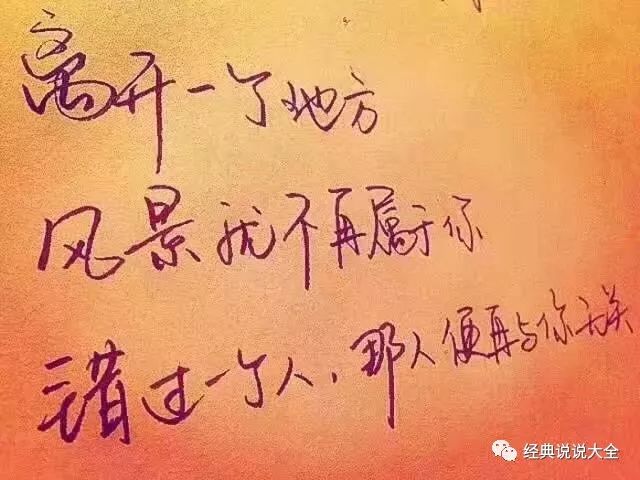 离开一个地方
风景就不再属于你
错过一个人,那人便再与你无关
经典说说大全